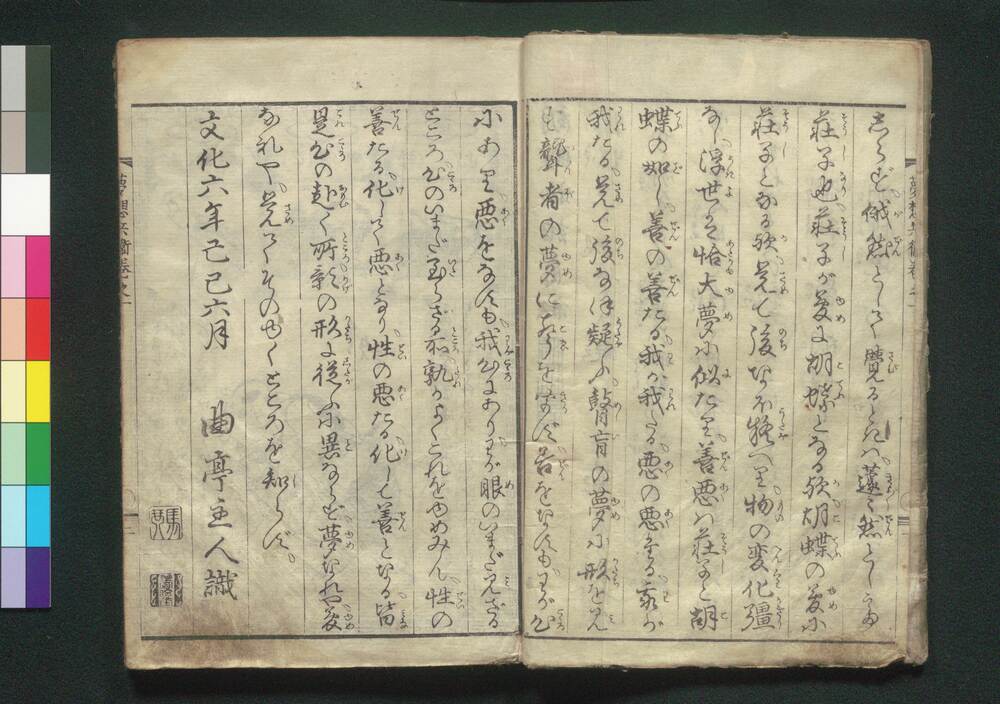 しらず俄然として覺るときは蘧々然としてまた
荘子也荘子が夢に胡蝶となる歟胡蝶の夢に
荘子となる歟覚て後なほ疑へり物の変化彊
なし浮世は恰大夢に似たり善悪は荘子と胡
蝶の如し善の善たる我か我たる悪の悪たる我か
我たる覚て後なほ疑ふ瞽盲の夢に形を見
ず聾者の夢に声をきかず善をなすもわが心
にあり悪をなすも我心にありわが眼のいまだ見ざる
ところ心のいまだ至らざる所孰かよくこれをやめみん性の
善たる化して悪となり性の悪たる化して善となる皆
是心の赴く所影の形に従ふに異ならず夢なれや夢
なれや覚てそのゆくところを知らず
文化六年己巳六月 曲亭主人識
夢想兵衛巻之一